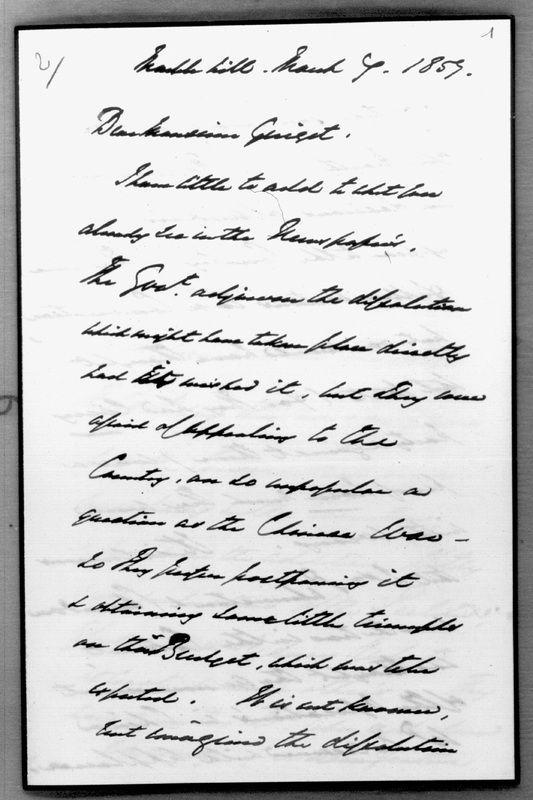 2/
1
March 9. 1857.
Dear Monsieur Guizot.
I have little to add to what you
already see in the Newspapers.
The Govt. adjourn the dissolution
which might have taken place directly
had they wished it, but they were
afraid of appealing to the
Country, on so unpopular a
question as the Chinese War —
so they prefer postponing it
& obtaining some little triumphs
on their Budget, which was to be
expected. It is not known,
but imagine the dissolution